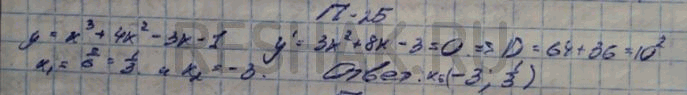 П-25
y = x³ + 4x² - 3x - 1 y' = 3x² + 8x - 3 = 0 => D = 64 + 36 = 10²
x₁ = 2/6 = 1/3 и x₂ = -3. Ответ: x=(-3; 1/3)
RESHAK.RU